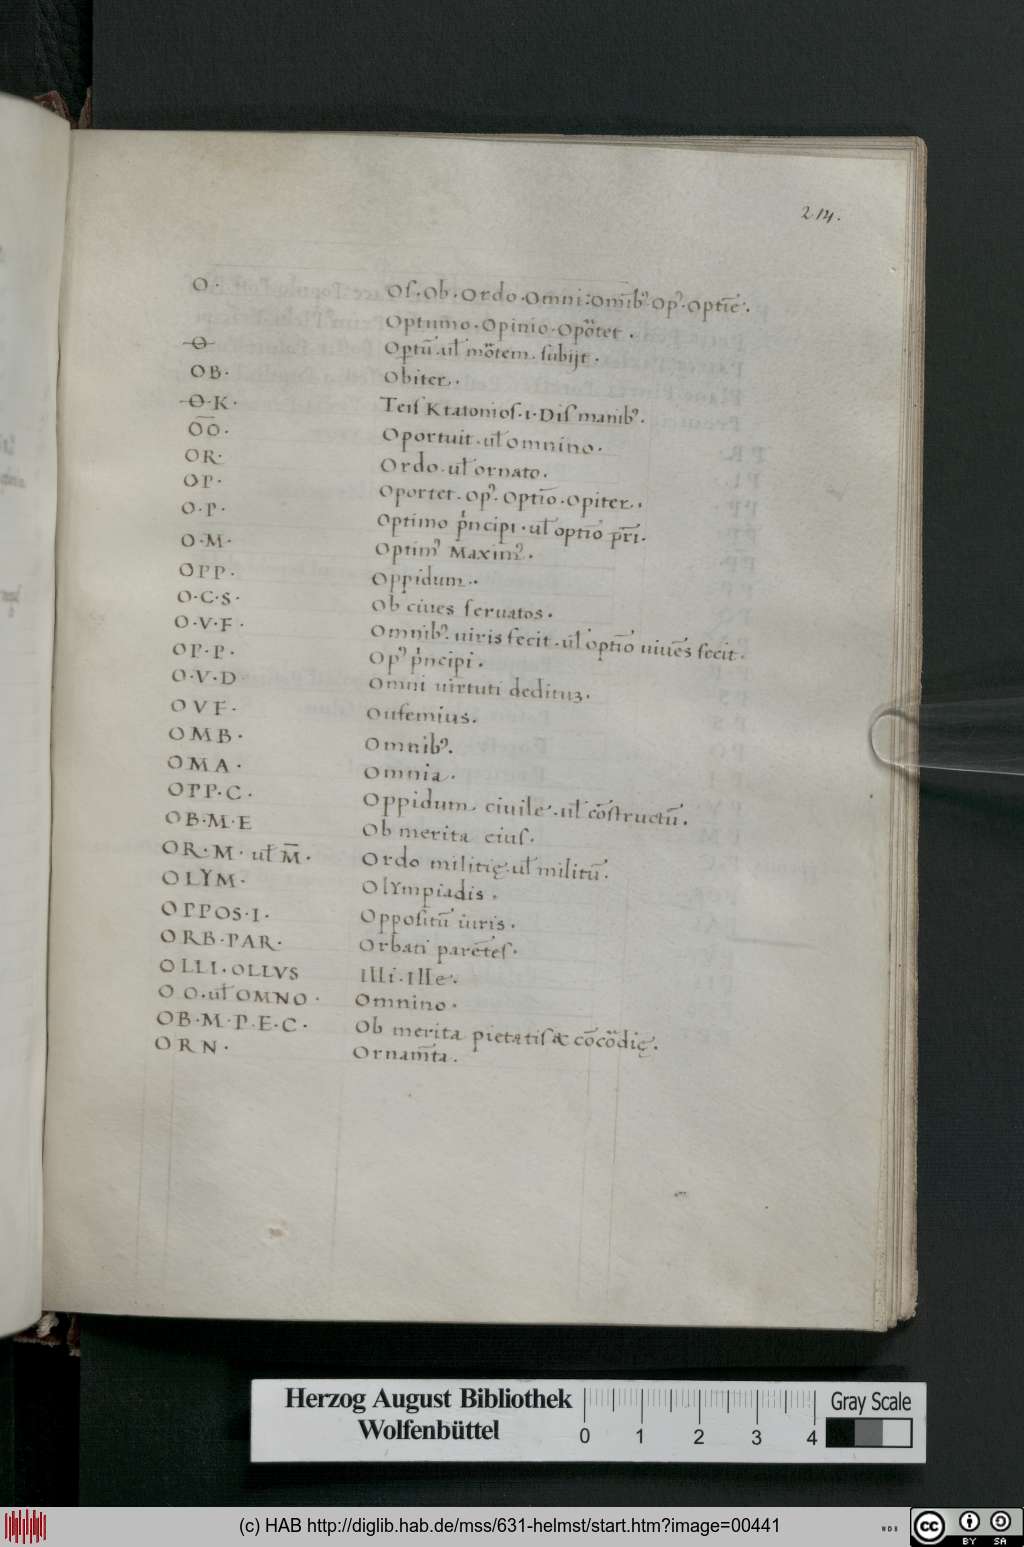 214.
O· Oſ·Ob·Ordo·Omni:om̄ibꝰ Opꝰ·optīe·
Optumo·Opinio·Opōtet·
O̵ Optū·uł mōtem subijt·
OB· Obiter·
O̵·K· Teiſ Ktatonioſ·ı·Diſ manibꝰ·
O̅O̅· Oportuit·uł omnino·
OR· Ordo·uł ornato·
OP· Oportet·opꝰ·optīo·opiter·
O·P· Optimo pͥncipi·uł optīo pr̄i·
O·M· Optimꝰ Maximꝰ·
OPP· Oppidum·
O·C·S· Ob ciues seruatos·
O·V·F· Omnibꝰ·uiris fecit·uł optīo uiuēs fecit·
OP·P· Opꝰ pͥncipi·
O·V·D Omni uirtuti deditus·
OVF· Oufemius·
OMB· Omnibꝰ·
OMA· Omnia·
OPP·C· Oppidum ciuile·uł cōſtructū·
OB·M·E Ob merita eiuſ·
OR·M· uł M̅· Ordo militię·uł militū·
OLYM· Olympiadis·
OPPOS·I· Oppoſitū iuris·
ORB·PAR· Orbati parētes·
OLLI·OLLVS Illi·Ille·
O O·uł OMNO· Omnino·
OB·M·P·E·C· Ob merita pietatiſ & cōcōdię·
ORN· Ornam̄ta·
Herzog August Bibliothek
Wolfenbüttel
0 1 2 3 4
Gray Scale
(c) HAB http://diglib.hab.de/mss/631-helmst/start.htm?image=00441
WDB
cc BY SA